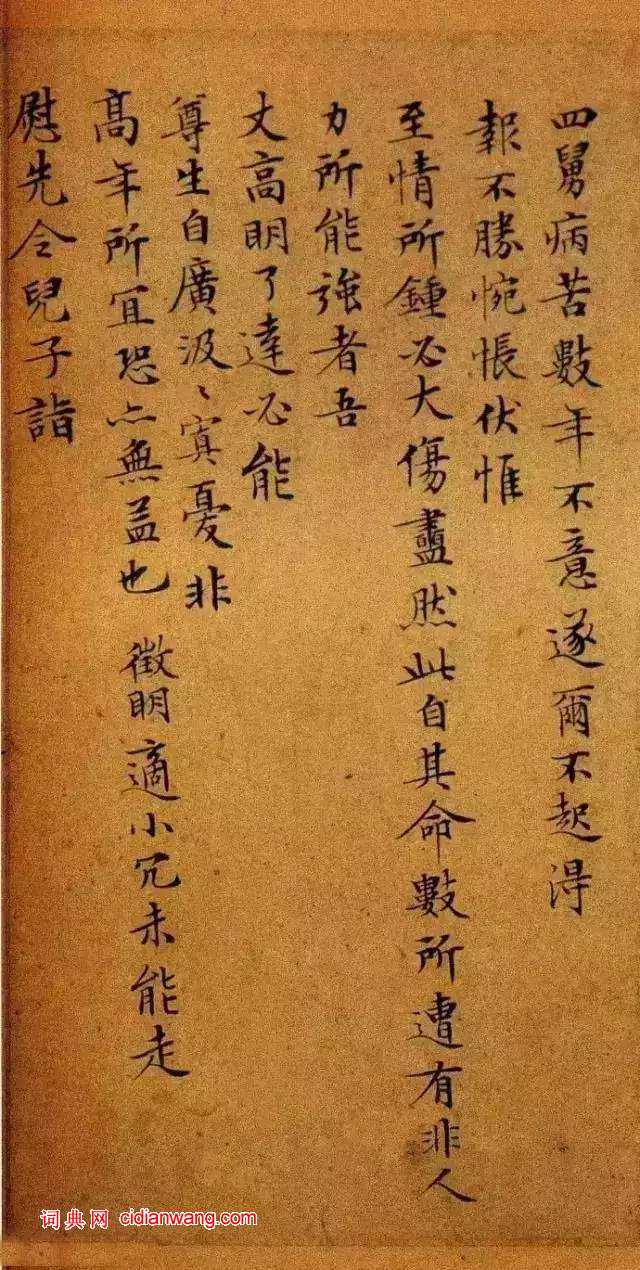 四舅病苦數年不意遂爾不起得
報不勝惋悵伏惟
至情所鍾必大傷盡然此自其命數所遭有非人
力所能強者吾
丈高明了達必能
尊生自廣汲〻寘憂非
高年所宜恐亦無益也 徵明適小冗未能走
慰先令兒子詣
词典网 cidianwang.com